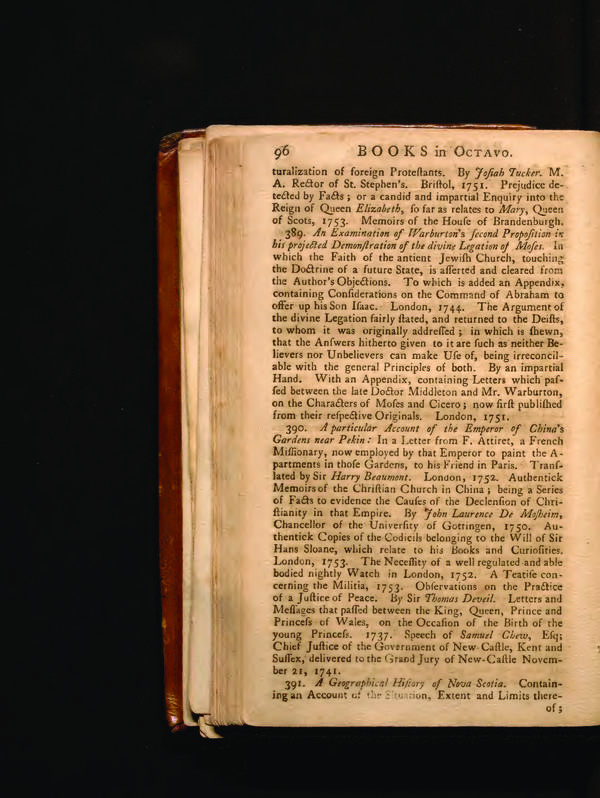 96 BOOKS in OCTAVO.
turalization of foreign Proteſtants. By Joſiah Tucker. M.
A. Rector of St. Stephen's. Briſtol, 1751. Prejudice de-
tected by Facts; or a candid and impartial Enquiry into the
Reign of Queen Elizabeth, ſo far as relates to Mary, Queen
of Scots, 1753. Memoirs of the Houſe of Brandenburgh.
389. An Examination of Warburton's ſecond Propoſition in
his projected Demonſtration of the divine Legation of Moſes. In
which the Faith of the antient Jewiſh Church, touching
the Doctrine of a future State, is aſſerted and cleared from
the Author's Objections. To which is added an Appendix,
containing Conſiderations on the Command of Abraham to
offer up his Son Iſaac. London, 1744. The Argument of
the divine Legation fairly ſtated, and returned to the Deiſts,
to whom it was originally addreſſed; in which is ſhewn,
that the Anſwers hitherto given to it are ſuch as neither Be-
lievers nor Unbelievers can make Uſe of, being irreconcil-
able with the general Principles of both. By an impartial
Hand. With an Appendix, containing Letters which paſ-
ſed between the late Doctor Middleton and Mr. Warburton,
on the Characters of Moſes and Cicero; now firſt publiſhed
from their reſpective Originals. London, 1751.
390. A particular Account of the Emperor of China's
Gardens near Pekin: In a Letter from F. Attiret, a French
Miſſionary, now employed by that Emperor to paint the A-
partments in thoſe Gardens, to his Friend in Paris. Tranſ-
lated by Sir Harry Beaumont. London, 1752. Authentick
Memoirs of the Chriſtian Church in China; being a Series
of Facts to evidence the Cauſes of the Declenſion of Chri-
ſtianity in that Empire. By John Laurence De Moſheim,
Chancellor of the Univerſity of Gottingen, 1750. Au-
thentick Copies of the Codicils belonging to the Will of Sir
Hans Sloane, which relate to his Books and Curioſities.
London, 1753. The Neceſſity of a well regulated and able
bodied nightly Watch in London, 1752. A Teatiſe con-
cerning the Militia, 1753. Obſervations on the Practice
of a Juſtice of Peace. By Sir Thomas Deveil. Letters and
Meſſages that paſſed between the King, Queen, Prince and
Princeſs of Wales, on the Occaſion of the Birth of the
young Princeſs. 1737. Speech of Samuel Chew, Eſq;
Chief Juſtice of the Government of New-Caſtle, Kent and
Suſſex, delivered to the Grand Jury of New-Caſtle Novem-
ber 21, 1741.
391. A Geographical Hiſtory of Nova Scotia. Contain-
ing an Account of the Situation, Extent and Limits there-
of;